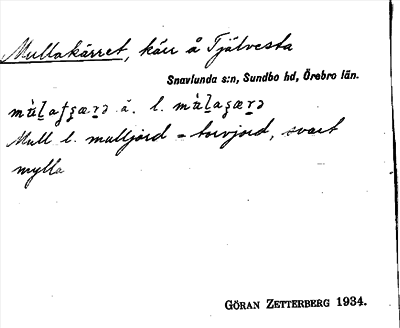 Mullakärret, kärr å Tjälvesta
Snavlunda s:n, Sundbo hd, Örebro län.
l.
Mull l. mulljord = torvjord, svart
mylla
GÖRAN ZETTERBERG 1934.